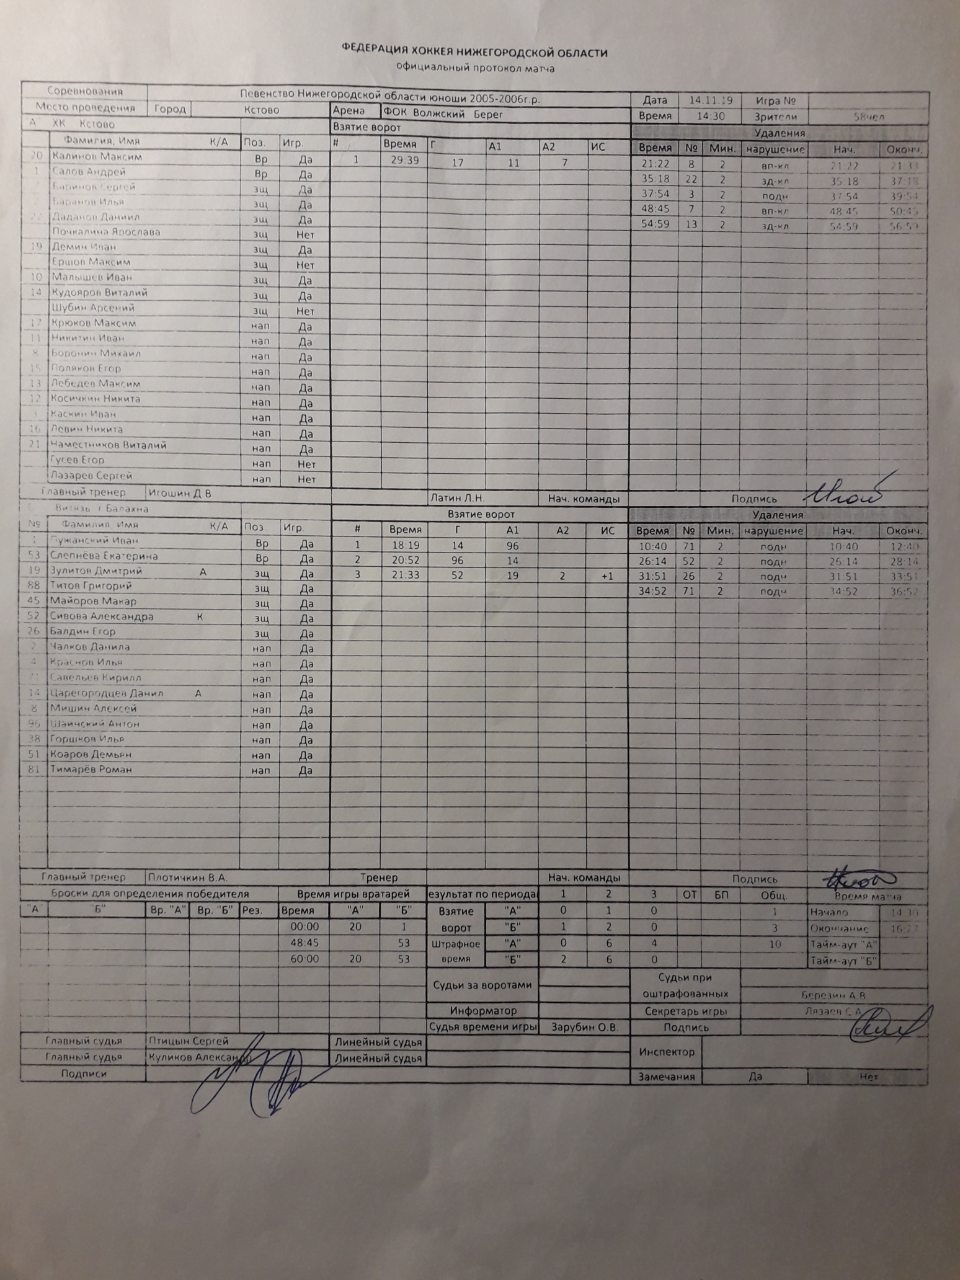 ФЕДЕРАЦИЯ ХОККЕЯ НИЖЕГОРОДСКОЙ ОБЛАСТИ
официальный протокол матча
Соревнования Певенство Нижегородской области юноши 2005-2006г.р. Дата 14.11.19 Игра №
Место проведения Город Кстово Арена ФОК Волжский Берег Время 14:30 Зрители 58чел
А ХК Кстово Взятие ворот Удаления
Фамилия, Имя К/А Поз. Игр. # Время Г А1 А2 ИС Время № Мин. нарушение Нач. Оконч.
20 Калинов Максим Вр Да 1 29:39 17 11 7 21:22 8 2 вп-кл 21:22
1 Салов Андрей Вр Да 35:18 22 2 зд-кл 35:18 37:18
Баринов Сергей зщ Да 37:54 3 2 подн 37:54 39:54
Баранов Илья зщ Да 48:45 7 2 вп-кл 48:45 50:45
22 Даданов Даниил зщ Да 54:59 13 2 зд-кл 54:59 56:59
Почкалина Ярослава зщ Нет
19 Демин Иван зщ Да
Ершов Максим зщ Нет
10 Малышев Иван зщ Да
14 Кудояров Виталий зщ Да
Шубин Арсений зщ Нет
17 Крюков Максим нап Да
11 Никитин Иван нап Да
8 Воронин Михаил нап Да
15 Поляков Егор нап Да
13 Лебедев Максим нап Да
12 Косичкин Никита нап Да
Каскин Иван нап Да
16 Левин Никита нап Да
21 Наместников Виталий нап Да
Гусев Егор нап Нет
Лазарев Сергей нап Нет
Главный тренер Игошин Д.В Латин Л.Н. Нач. команды Подпись
Витязь г Балахна Взятие ворот Удаления
№ Фамилия, Имя К/А Поз. Игр. # Время Г А1 А2 ИС Время № Мин. нарушение Нач. Оконч.
1 Пужанский Иван Вр Да 1 18:19 14 96 10:40 71 2 подн 10:40 12:40
53 Слепнева Екатерина Вр Да 2 20:52 96 14 26:14 52 2 подн 26:14 28:14
19 Зулитов Дмитрий А зщ Да 3 21:33 52 19 2 +1 31:51 26 2 подн 31:51 33:51
88 Титов Григорий зщ Да 34:52 71 2 подн 34:52 36:52
45 Майоров Макар зщ Да
52 Сивова Александра К зщ Да
26 Балдин Егор зщ Да
2 Чалков Данила нап Да
4 Краснов Илья нап Да
71 Савельев Кирилл нап Да
14 Царегородцев Данил А нап Да
8 Мишин Алексей нап Да
96 Шаинский Антон нап Да
38 Горшков Илья нап Да
51 Коаров Демьян нап Да
81 Тимарёв Роман нап Да
Главный тренер Плотичкин В.А. Тренер Нач. команды Подпись
Броски для определения победителя Время игры вратарей езультат по периода 1 2 3 ОТ БП Общ Время матча
"А" "Б" Вр. "А" Вр. "Б" Рез. Время "А" "Б" Взятие "А" 0 1 0 1 Начало 14:30
00:00 20 1 ворот "Б" 1 2 0 3 Окончание
48:45 53 Штрафное "А" 0 6 4 10 Тайм-аут "А"
60:00 20 53 время "Б" 2 6 0 Тайм-аут "Б"
Судьи за воротами Судьи при оштрафованных Березин А.В.
Информатор Секретарь игры Лязаев С.А.
Судья времени игры Зарубин О.В. Подпись
Главный судья Птицын Сергей Линейный судья Инспектор
Главный судья Куликов Александр Линейный судья
Подписи Замечания Да Нет